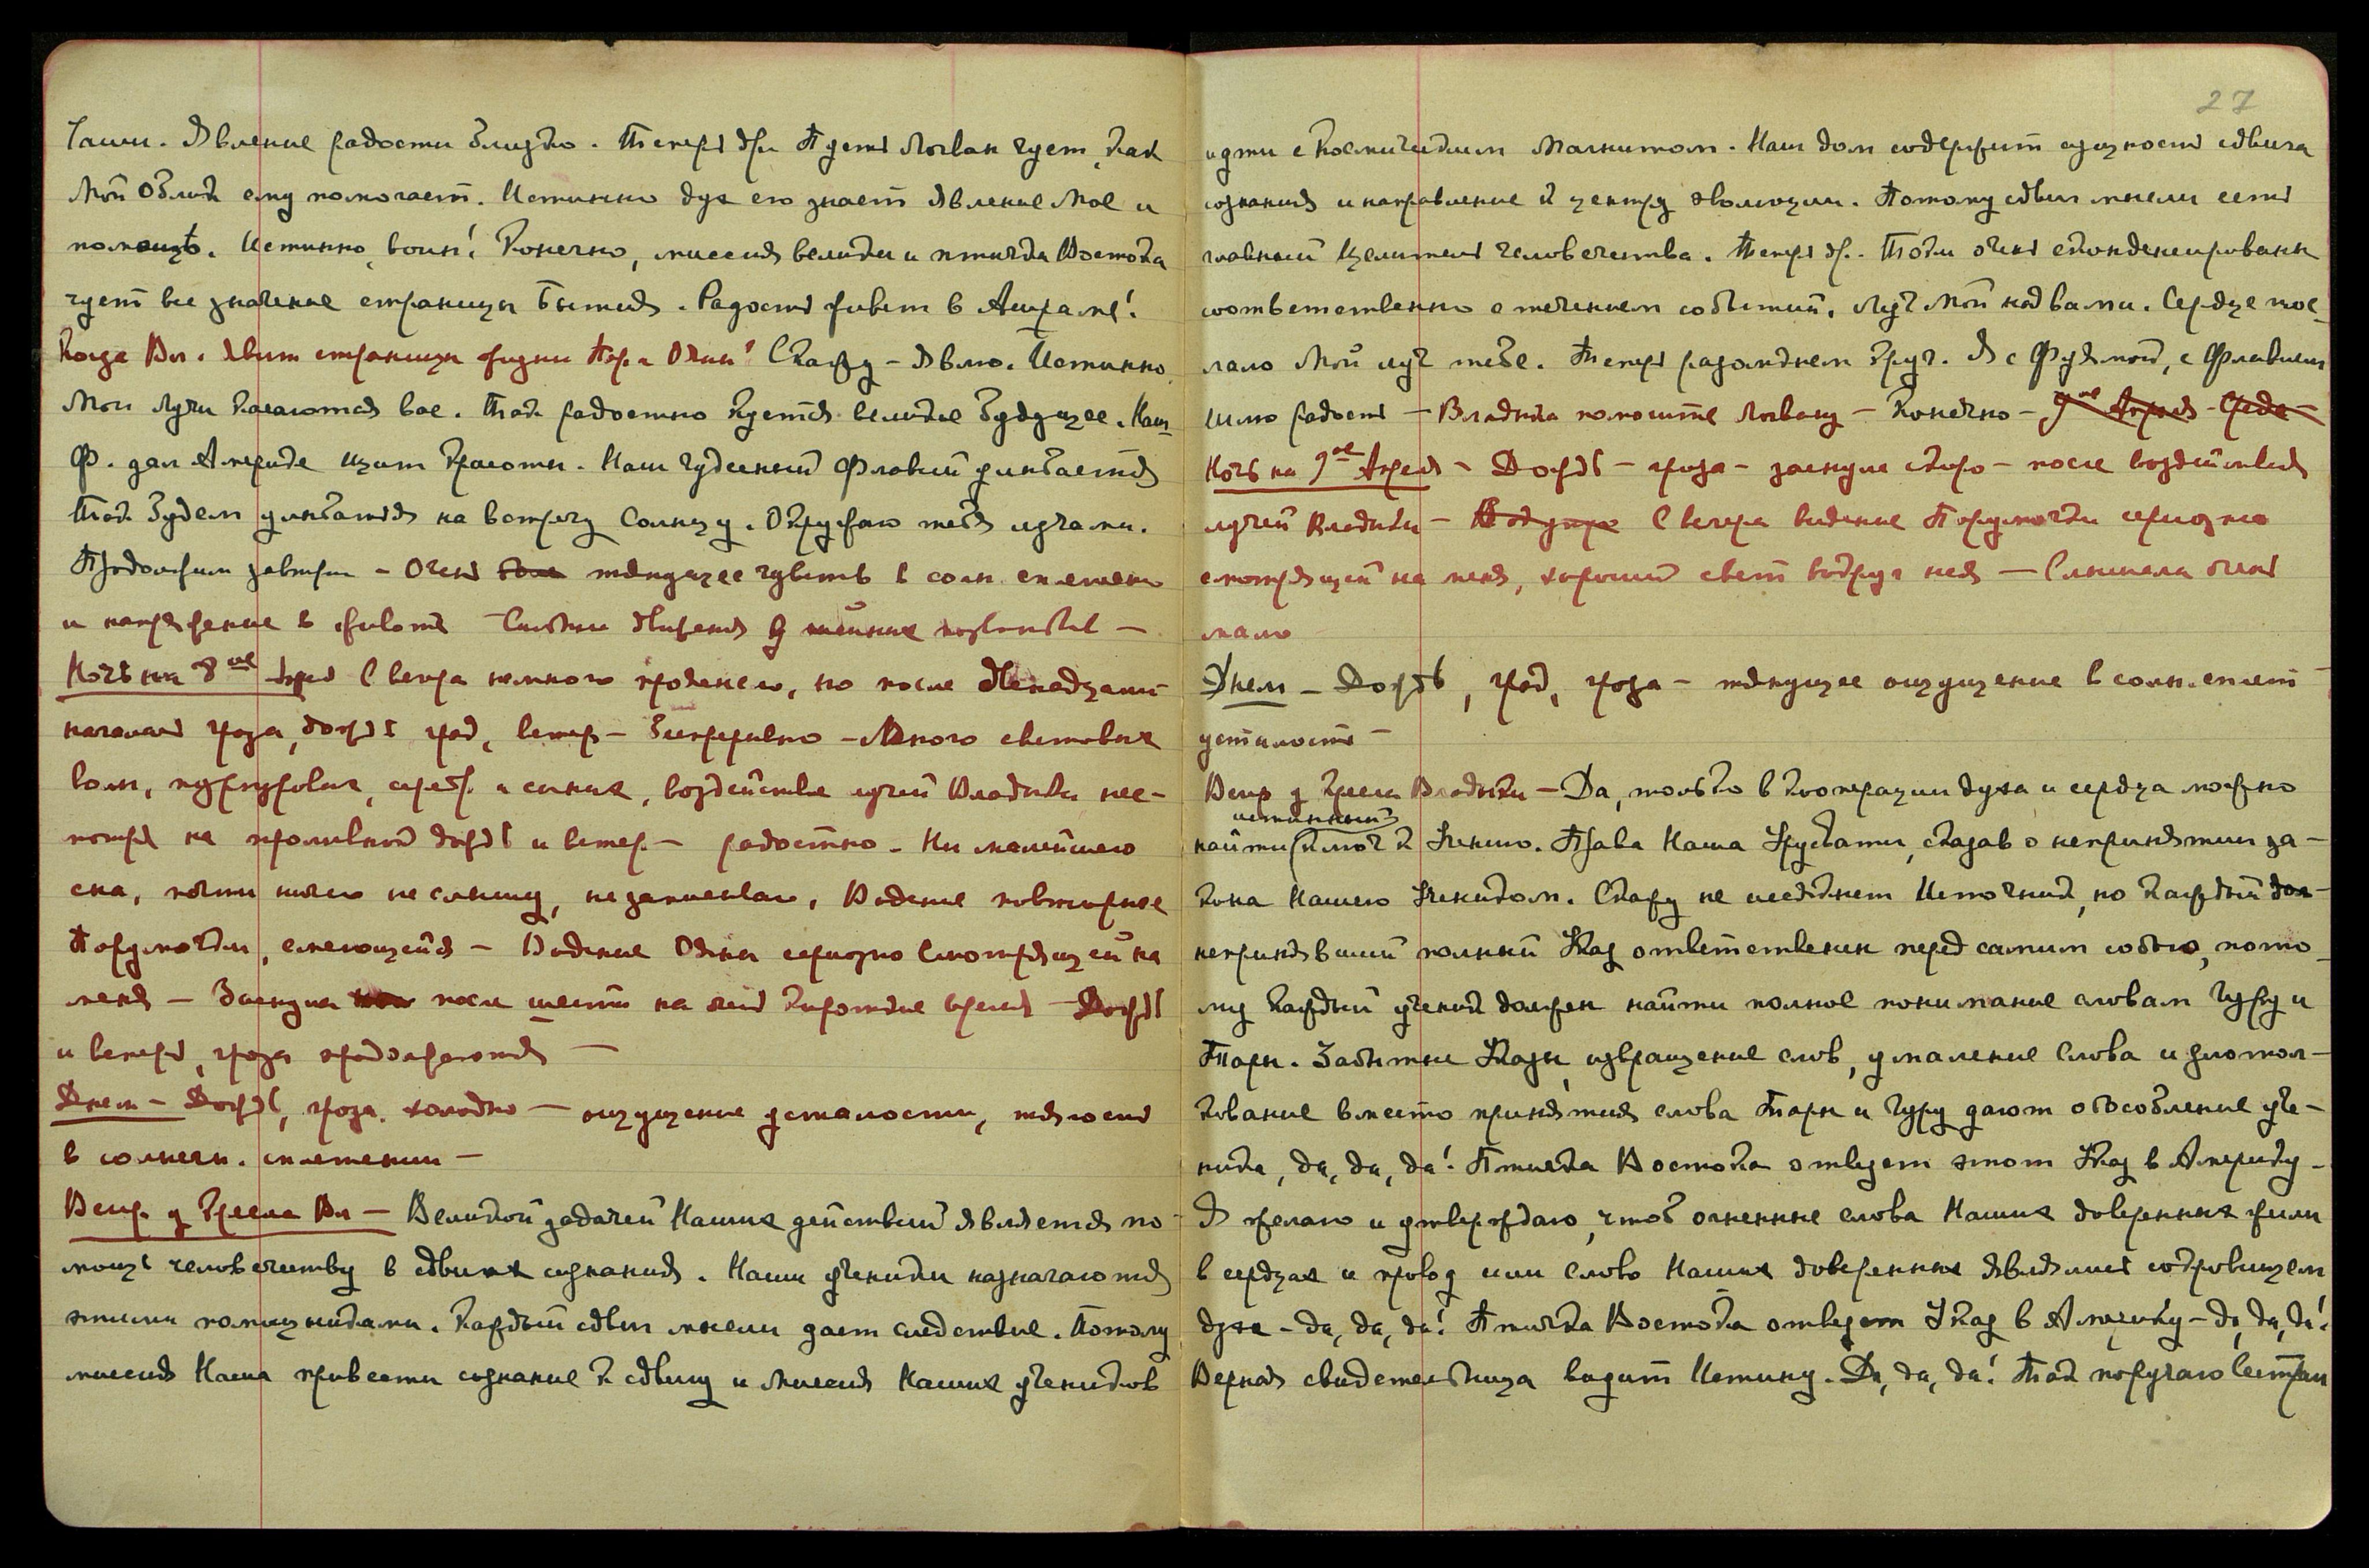 Чаши. Явление радости близко. Теперь др. Пусть Логван чует, как
Мой Облик ему помогает. Истинно дух его знает явление Мое и
помощь. Истинно, воин! Конечно, миссия велика и птичка Востока
чует все значение страницы Бытия. Радость живет в Ашраме!
Когда Вл. явит страницы жизни Пор. и Ояны? Скажу – явлю. Истинно,
Мои Лучи касаются вас. Так радостно куется великое будущее. Наш
Ф. дал Америке щит Красоты. Наш чудесный Флавий улыбается
Так будем улыбаться на встречу Солнцу. Окружаю тебя лучами.
Продолжим завтра – Очень тянущее чувство в солн. сплетении
и напряжение в животе – Сильные движения у шейных позвонков –
Ночь на 8ое Апреля С вечера немного прояснело, но после двенадцати
началась гроза, дождь град, ветер – беспрерывно – Много световых
волн, пурпуровых, сереб. и синих, воздействие лучей Владыки нес-
мотря на проливной дождь и ветер – радостно – Ни малейшего
сна, почти ничего не слышу, не записываю, Видение повторное
Порумочки, смеющейся – Видение Ояны серьезно смотрящей на
меня – Заснула после шести на очень короткое время – Дождь
и ветер, гроза продолжаются –
Днем – Дождь, гроза, холодно – ощущение усталости, тягость
в солнечн. сплетении –
Вечер. у Кресла Вл – Великой задачей Наших действий является по-
мощь человечеству в сдвигах сознания. Наши ученики назначаются
этими помощниками. Каждый сдвиг мысли дает следствие. Потому
миссия Наша привести сознание к сдвигу и миссия Наших учеников
27
идти с Космическим Магнитом. Наш дом содержит сущность сдвига
сознания и направление к центру эволюции. Потому сдвиг мысли есть
главный Целитель человечества. Теперь др. Токи очень сконденсированы
соответственно с течением событий. Луч Мой над вами. Сердце пос-
лало Мой луч тебе. Теперь разомкнем круг. Я с Фуямой, с Флавием
Шлю радость – Владыка помогите Логвану – Конечно – 9ое Апреля – Среда –
Ночь на 9ое Апреля – Дождь – гроза – заснула скоро – после воздействия
лучей Владыки – С вечера видение Порумочки серьезно
смотрящей на меня, хороший свет вокруг нея – Слышала очень
мало
Днем – Дождь, град, гроза – тянущее ощущение в солн. сплет –
усталость –
Вечер у Кресла Владыки – Да, только в кооперации духа и сердца можно
истинный
найти ключ к Учению. Права Наша Урусвати, сказав о непринятии за-
кона Нашего Учеником. Скажу не иссякнет Источник, но каждый
непринявший полный Указ ответственен перед самим собою, пото-
му каждый ученик должен найти полное понимание словам Гуру и
Тары. Забытые Указы, извращение слов, умаление Слова и злотол-
кование вместо принятия слова Тары и Гуру дают обособление уче-
ника, да, да, да! Птичка Востока отвезет этот Указ в Америку –
Я желаю и утверждаю, чтоб огненные слова Наших доверенных жили
в сердцах и провод или слово Наших доверенных являлись сокровищем
духа – да, да, да! Птичка Востока отвезет Указ в Америку – да, да, да!
Верная свидетельница видит Истину. Да, да, да! Так поручаю сестрам